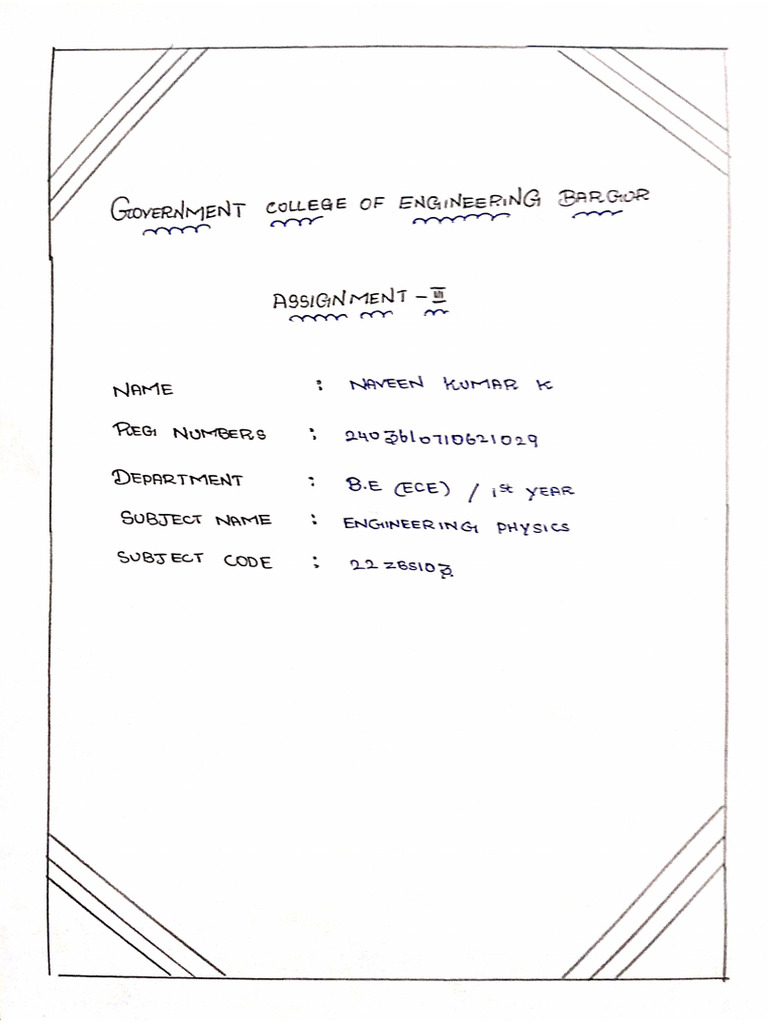 GOVERNMENT COLLEGE OF ENGINEERING BARGUR
ASSIGNMENT - III
NAME : NAVEEN KUMAR K
REGI NUMBERS : 2403610710621029
DEPARTMENT : B.E (ECE) / 1st YEAR
SUBJECT NAME : ENGINEERING PHYSICS
SUBJECT CODE : 22ZBS103